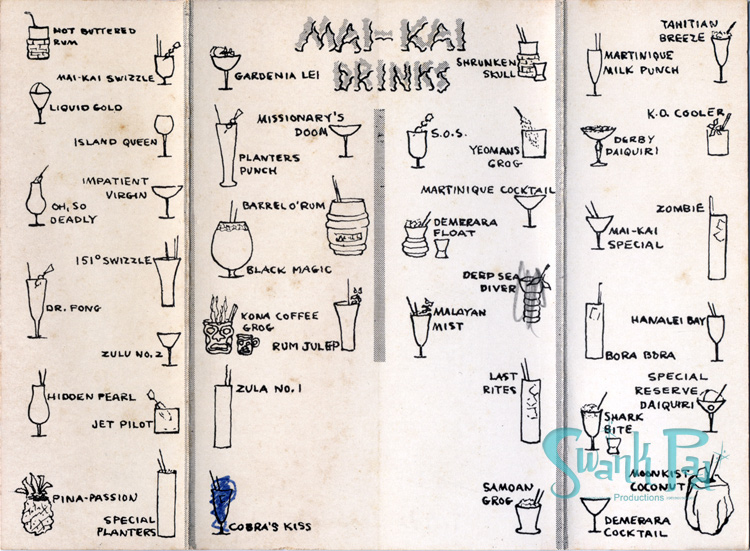 MAI-KAI
DRINKS
HOT BUTTERED
RUM
MAI-KAI SWIZZLE
LIQUID GOLD
ISLAND QUEEN
IMPATIENT
VIRGIN
OH, SO
DEADLY
151° SWIZZLE
DR. FONG
ZULU NO. 2
HIDDEN PEARL
JET PILOT
PINA-PASSION
SPECIAL
PLANTERS
GARDENIA LEI
MISSIONARY'S
DOOM
PLANTERS
PUNCH
BARREL O'RUM
BLACK MAGIC
KONA COFFEE
GROG
RUM JULEP
ZULA NO. 1
COBRA'S KISS
SHRUNKEN
SKULL
S.O.S.
YEOMANS
GROG
MARTINIQUE COCKTAIL
DEMERARA
FLOAT
DEEP SEA
DIVER
MALAYAN
MIST
LAST
RITES
SAMOAN
GROG
TAHITIAN
BREEZE
MARTINIQUE
MILK PUNCH
K.O. COOLER
DERBY
DAIQUIRI
ZOMBIE
MAI-KAI
SPECIAL
HANALEI BAY
BORA BORA
SPECIAL
RESERVE
DAIQUIRI
SHARK
BITE
MOONKIST
COCONUT
DEMERARA
COCKTAIL
Swank Pad
Productions